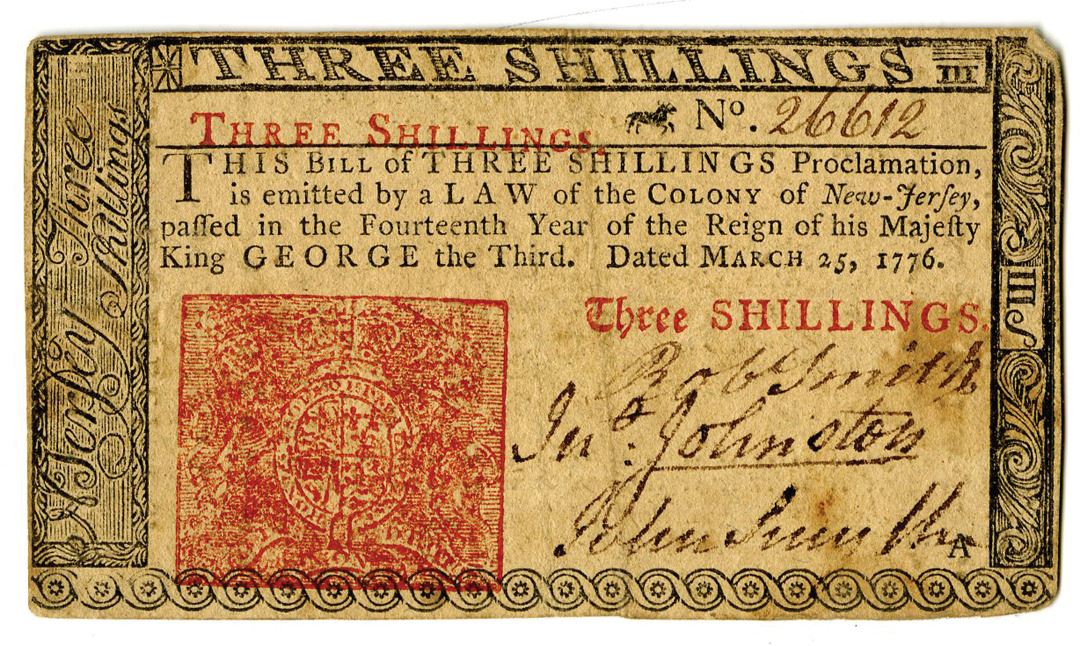 THREE SHILLINGS III
THREE SHILLINGS.
No. 26612
THIS BILL of THREE SHILLINGS Proclamation,
is emitted by a LAW of the COLONY of New-Jerſey,
paſſed in the Fourteenth Year of the Reign of his Majeſty
King GEORGE the Third. Dated MARCH 25, 1776.
Three SHILLINGS.
Robt Smith
Jno. Johnston
John Smyth
A
N Jerſey Three
Shillings
III S